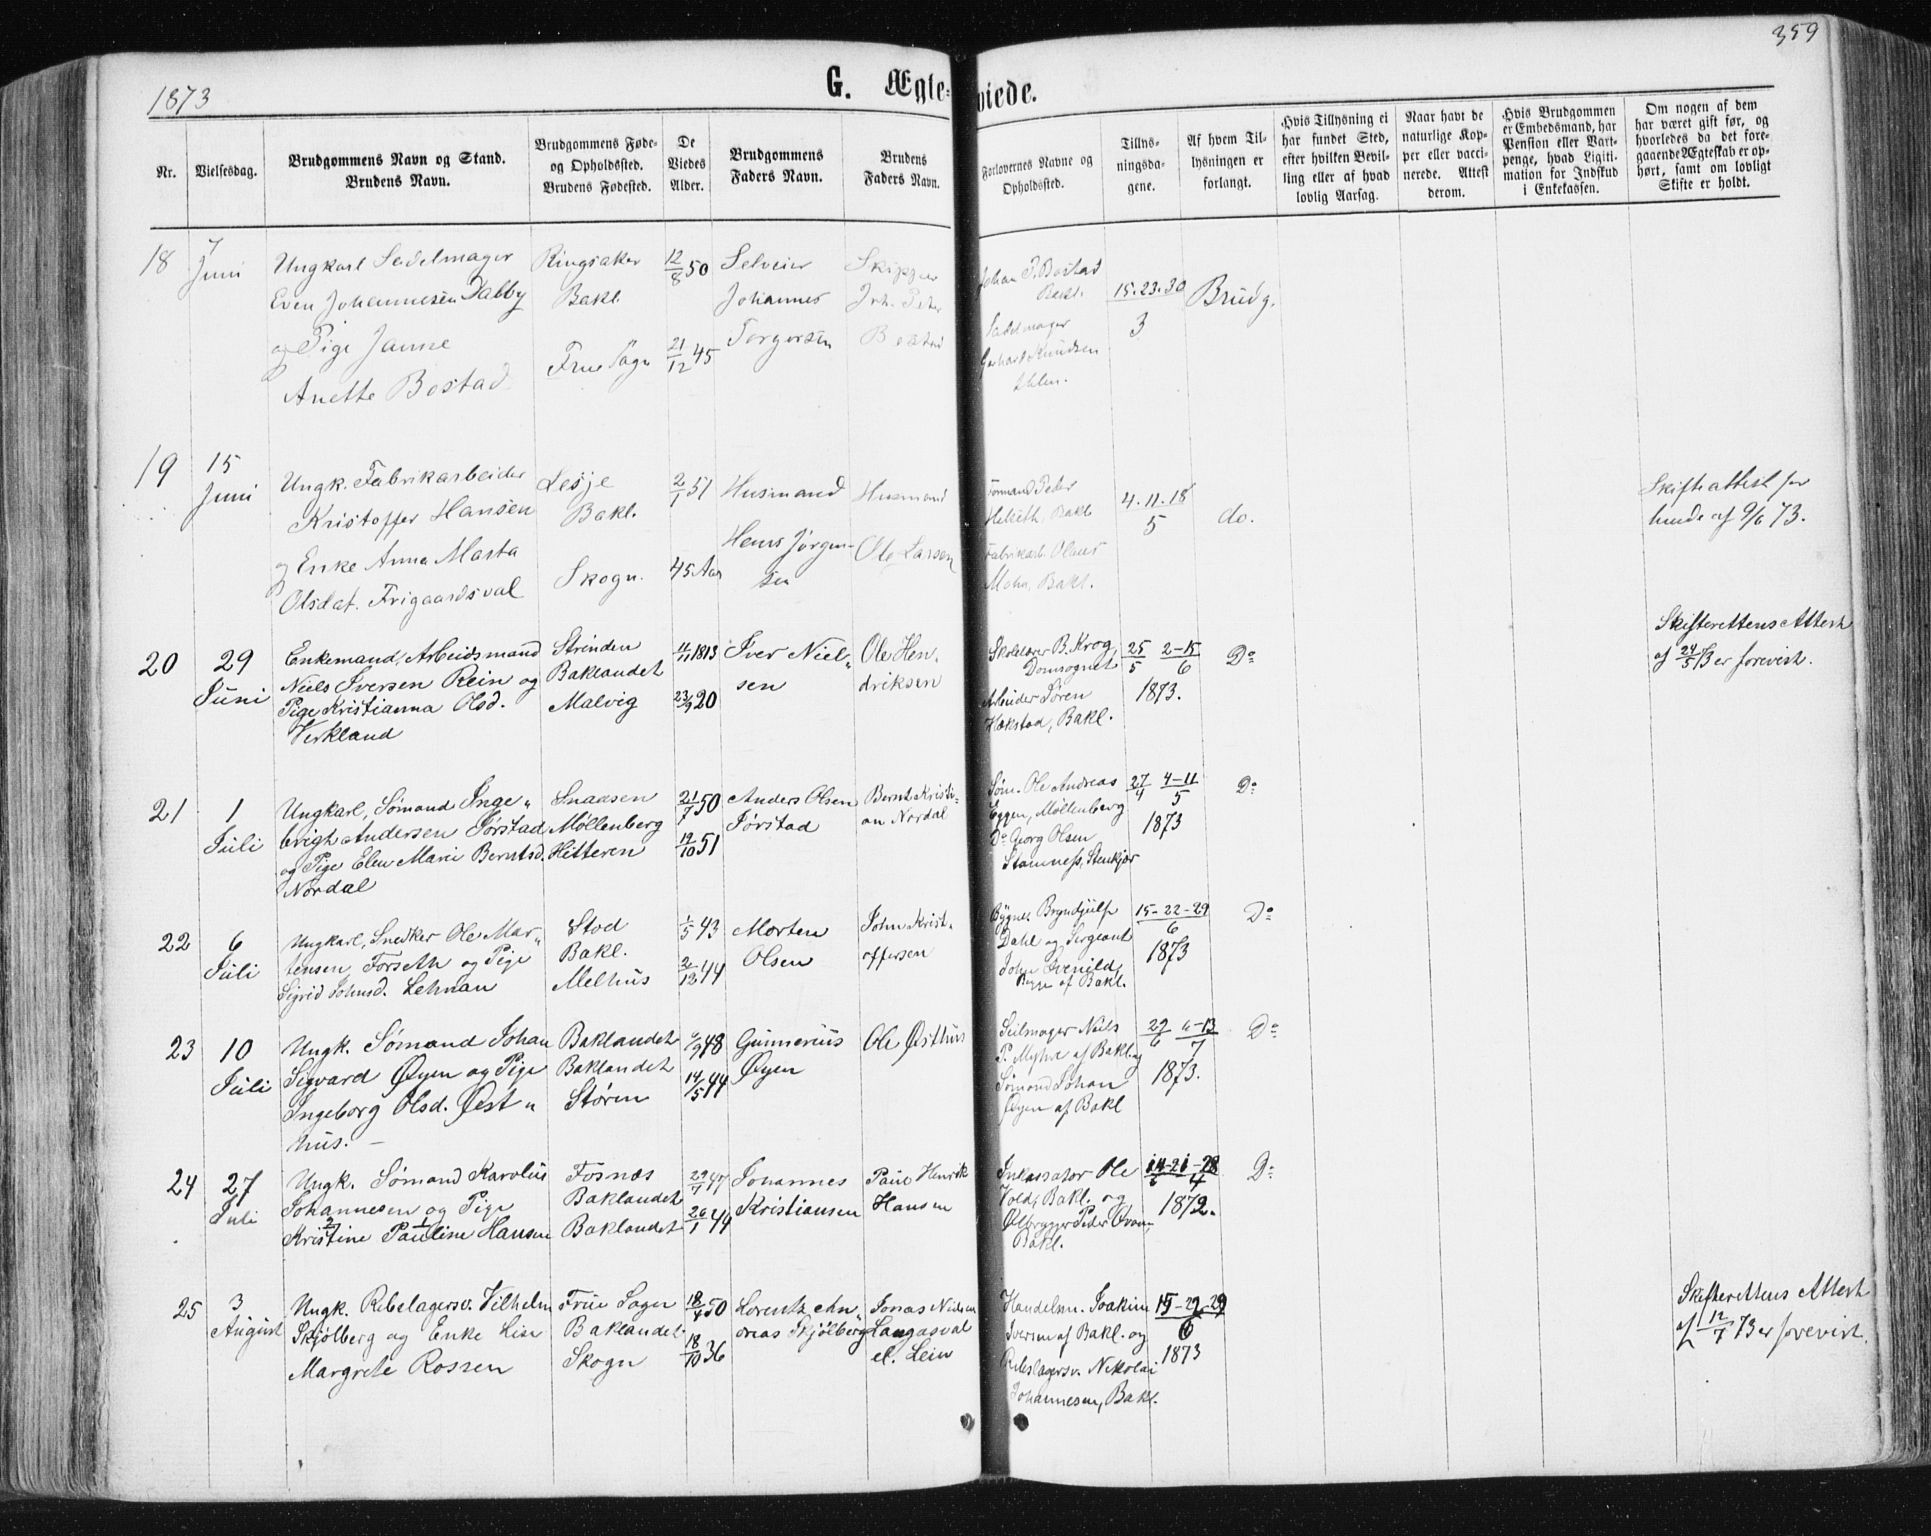 359
1873
G. Ægteviede.
Nr.
Vielsesdag.
Brudgommens Navn og Stand.
Brudens Navn.
Brudgommens Føde-
og Opholdssted.
Brudens Fødested.
De
Viedes
Alder.
Brudgommens
Faders Navn.
Brudens
Faders Navn.
Forlovernes Navne og
Opholdssted.
Tillys-
ningsda-
gene.
Af hvem Til-
lysningen er
forlangt.
Hvis Tillysning ei
har fundet Sted,
efter hvilken Bevil-
ling eller af hvad
lovlig Aarsag.
Naar havt de
naturlige Kop-
per eller vacci-
nerede. Attest
derom.
Hvis Brudgommen
er Embedsmand, har
Pension eller Vart-
penge, hvad Ligiti-
mation for Indskud
i Enkekassen.
Om nogen af dem
har været gift før, og
hvorledes da det fore-
gaaende Ægteskab er op-
hørt, samt om lovligt
Skifte er holdt.
18
7
Juni
Ungkarl Sadelmager
Even Johannesen Dabby
og Pige Janne
Anette Bostad
Ringsaker
Bakl.
Frue Sogn
12/8 50
21/12 45
Selveier
Johannes
Torgersen
Skipper
Joh. Peter
Bostad
Johan P. Bostad
Bakl.
Sadelmager
Gerhard Knudsen
Ihlen.
15. 23. 30
3
Brudg.
19
15
Juni
Ungk. Fabrikarbeider
Kristoffer Hansen
og Enke Anna Marta
Olsdat. Frigaardsval
Lesje
Bakl.
Skogn.
2/1 51
45 Aar
Husmand
Hans Jørgen-
sen
Husmand
Ole Larsen
Formand Peter
Bakl.
Fabrikarb.
Bakl.
4. 11. 18
5
do.
Skifteattest for
hende af 9/6 73.
20
29
Juni
Enkemand, Arbeidsmand
Niels Iversen Rein og
Pige Kristianna Olsd.
Verkland
Strinden
Baklandet
Malvig
11/11 1813
23/9 20
Iver Niel-
sen
Ole Hen-
driksen
B. Krog,
Domsognet
Arbeider Søren
Hakstad, Bakl.
25/5 2–15/6
1873.
Do
Skifterettens Attest
af 24/5 73 er forevist.
21
1
Juli
Ungkarl, Sømand Inge-
brigt Andersen Jørstad
og Pige Elen Marie Berntsd.
Nordal
Snaasen
Møllenberg
Hitteren
21/7 50
19/10 51
Anders Olsen
Jørstad
Bernt Kristi-
an Nordal
Søm. Ole Andreas
Eggen, Møllenberg
Do Georg Olsen
Stamness, Stenkjær
27/4 4–11/5
1873
Do
22
6
Juli
Ungkarl, Snedker Ole Mar-
tensen, Forseth og Pige
Sigrid Johnsd. Lehman
Stod
Bakl.
Melhus
1/5 43
2/12 44
Morten
Olsen
John Krist-
offersen
Bygm. Bryndjulf
Dahl og Sergeant
John
Begge af Bakl.
15–22–29
6
1873
Do
23
10
Juli
Ungk. Sømand Johan
Sigvard Øyen og Pige
Ingeborg Olsd. Øst-
hus. –
Baklandet
Baklandet
Støren
9/9 48
14/5 44
Gunnerius
Øyen
Ole Østhus
Seilmager Niels
P. Myhre af Bakl. og
Sømand Johan
Øyen af Bakl
29/6 6–13/7
1873.
Do
24
27
Juli
Ungk. Sømand Karolius
Johannesen og Pige
Kristine Pauline Hansen
Fosnæs
Baklandet
Baklandet
29/7 47
26/1 44
Johannes
Kristiansen
Paul Henrik
Hansen
Inkassator Ole
Vold, Bakl. og
Ølbrygger Peder
Bakl.
14–21–28
1872.
Do
25
3
August
Ungk. Rebslagersv. Vilhelm
Skjølberg og Enke Lise
Margrete Rossen
Frue Sogn
Baklandet
Skogn
18/4 50
18/10 36
Lorentz An-
dreas Skjølberg
Jonas Nielsen
Langasval
el. Lein
Handelsm. Joakim
Iversen af Bakl. og
Rebslagersv. Nikolai
Johannesen, Bakl.
15–22–29
6
1873
Skifterettens Attest
af 12/7 73 er forevist.